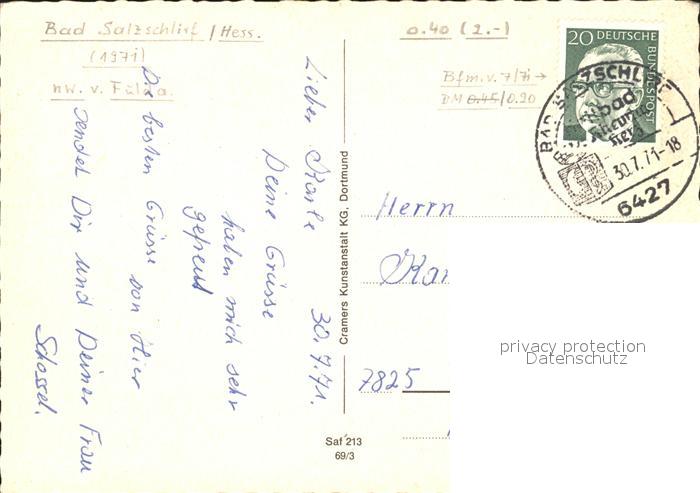 Bad Salzschlirf / Hess.
(1971)
nw. v. Fulda.
0.40 (2.-)
Bfm. v. 7/71 →
DM 0.45/0.20
20 DEUTSCHE
BUNDESPOST
BAD SALZSCHLIRF
30.7.71-18
6427
30.7.71.
Lieber Karle
Deine Grüsse
haben mich sehr
gefreut
Die besten Grüsse von Hier
sendet Dir und Deiner Frau
Schossel.
Cramers Kunstanstalt KG, Dortmund
Herrn
Kar
7825
Saf 213
69/3
privacy protection
Datenschutz